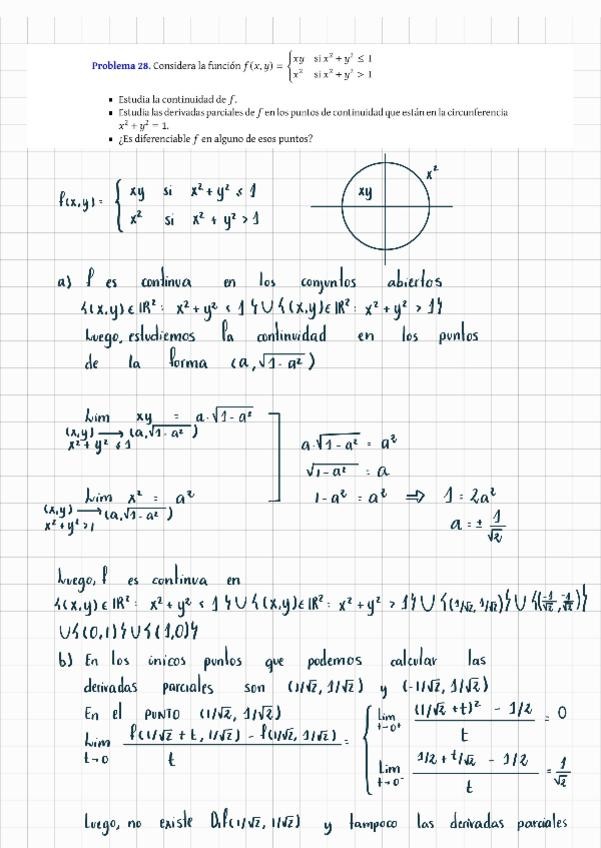 Problema 28. Considera la función f(x, y) = { xy si x² + y² ≤ 1
x² si x² + y² > 1
▪ Estudia la continuidad de f.
▪ Estudia las derivadas parciales de f en los puntos de continuidad que están en la circunferencia
x² + y² = 1.
▪ ¿Es diferenciable f en alguno de esos puntos?
f(x,y) = { xy si x² + y² ≤ 1
x² si x² + y² > 1
xy
x²
a) f es continua en los conjuntos abiertos
{(x,y) ∈ IR² : x² + y² < 1} ∪ {(x,y) ∈ IR² : x² + y² > 1}
Luego, estudiemos la continuidad en los puntos
de la forma (a, √(1-a²))
Lim xy = a·√(1-a²)
(x,y) → (a, √(1-a²))
x² + y² ≤ 1
Lim x² = a²
(x,y) → (a, √(1-a²))
x² + y² > 1
a·√(1-a²) = a²
√(1-a²) = a
1-a² = a² ⇒ 1 = 2a²
a = ± 1/√2
Luego, f es continua en
{(x,y) ∈ IR² : x² + y² < 1} ∪ {(x,y) ∈ IR² : x² + y² > 1} ∪ {(1/√2, 1/√2)} ∪ {(-1/√2, -1/√2)}
∪ {(0,1)} ∪ {(1,0)}
b) En los únicos puntos que podemos calcular las
derivadas parciales son (1/√2, 1/√2) y (-1/√2, 1/√2)
En el PUNTO (1/√2, 1/√2)
Lim t→0 (f(1/√2 + t, 1/√2) - f(1/√2, 1/√2)) / t = { Lim t→0⁺ ((1/√2 + t)² - 1/2) / t = 0
Lim t→0⁻ (1/2 + t/√2 - 1/2) / t = 1/√2
Luego, no existe D₁f(1/√2, 1/√2) y tampoco las derivadas parciales